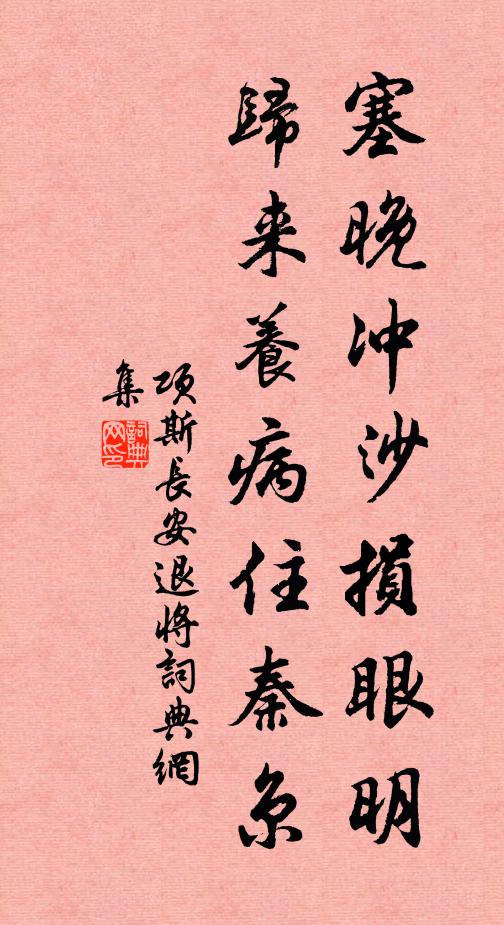 塞晚冲沙損眼明
歸来養病住秦京
項斯長安退將詞典網
集
詞典
网印